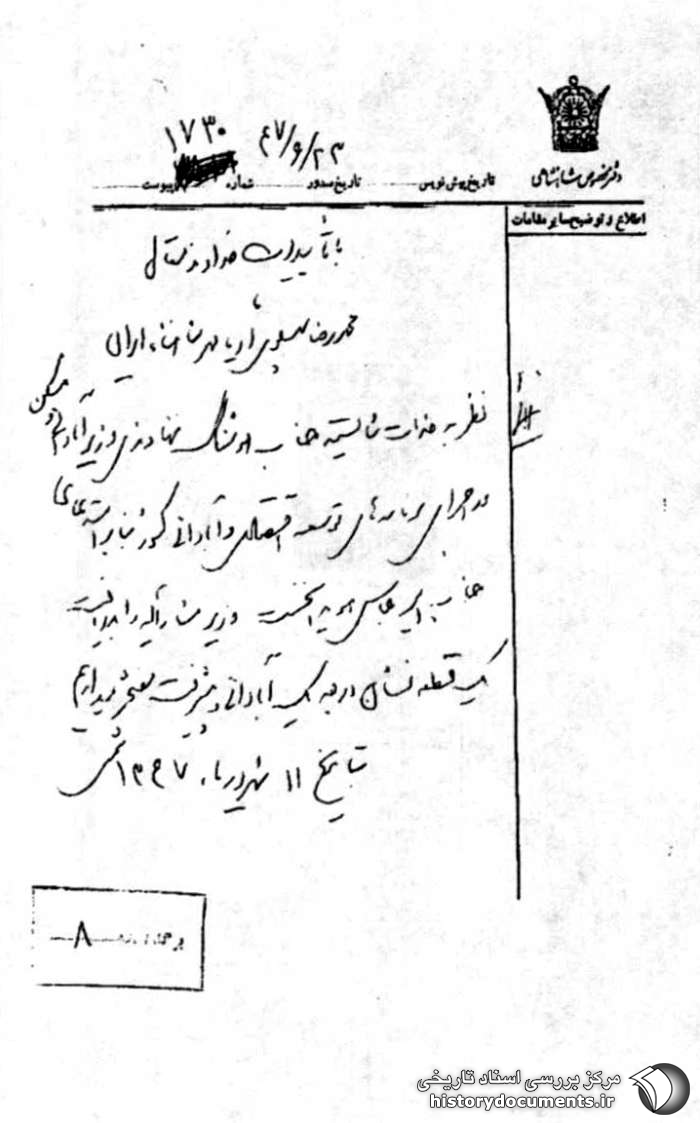 ۱۷۳۰
۴۷/۶/۲۳
دفتر مخصوص شاهنشاهی
تاریخ پیش نویس تاریخ صدور شماره پیوست
اطلاع و توضیح سایر مقامات
با تأییدات خداوند متعال
ما
محمدرضا پهلوی آریامهر شاهنشاه ایران
نظر به خدمات شایسته جناب هوشنگ نهاوندی وزیر آبادانی و مسکن
در اجرای برنامه‌های توسعه اقتصادی و آبادانی کشور بنا بر استدعای
جناب امیر عباس هویدا نخست وزیر مشارالیه را بدریافت
یک قطعه نشان درجه یک آبادانی و پیشرفت مفتخر میداریم
بتاریخ ۱۱ شهریور ماه ۱۳۴۷ شمسی
۸
مرکز بررسی اسناد تاریخی
historydocuments.ir